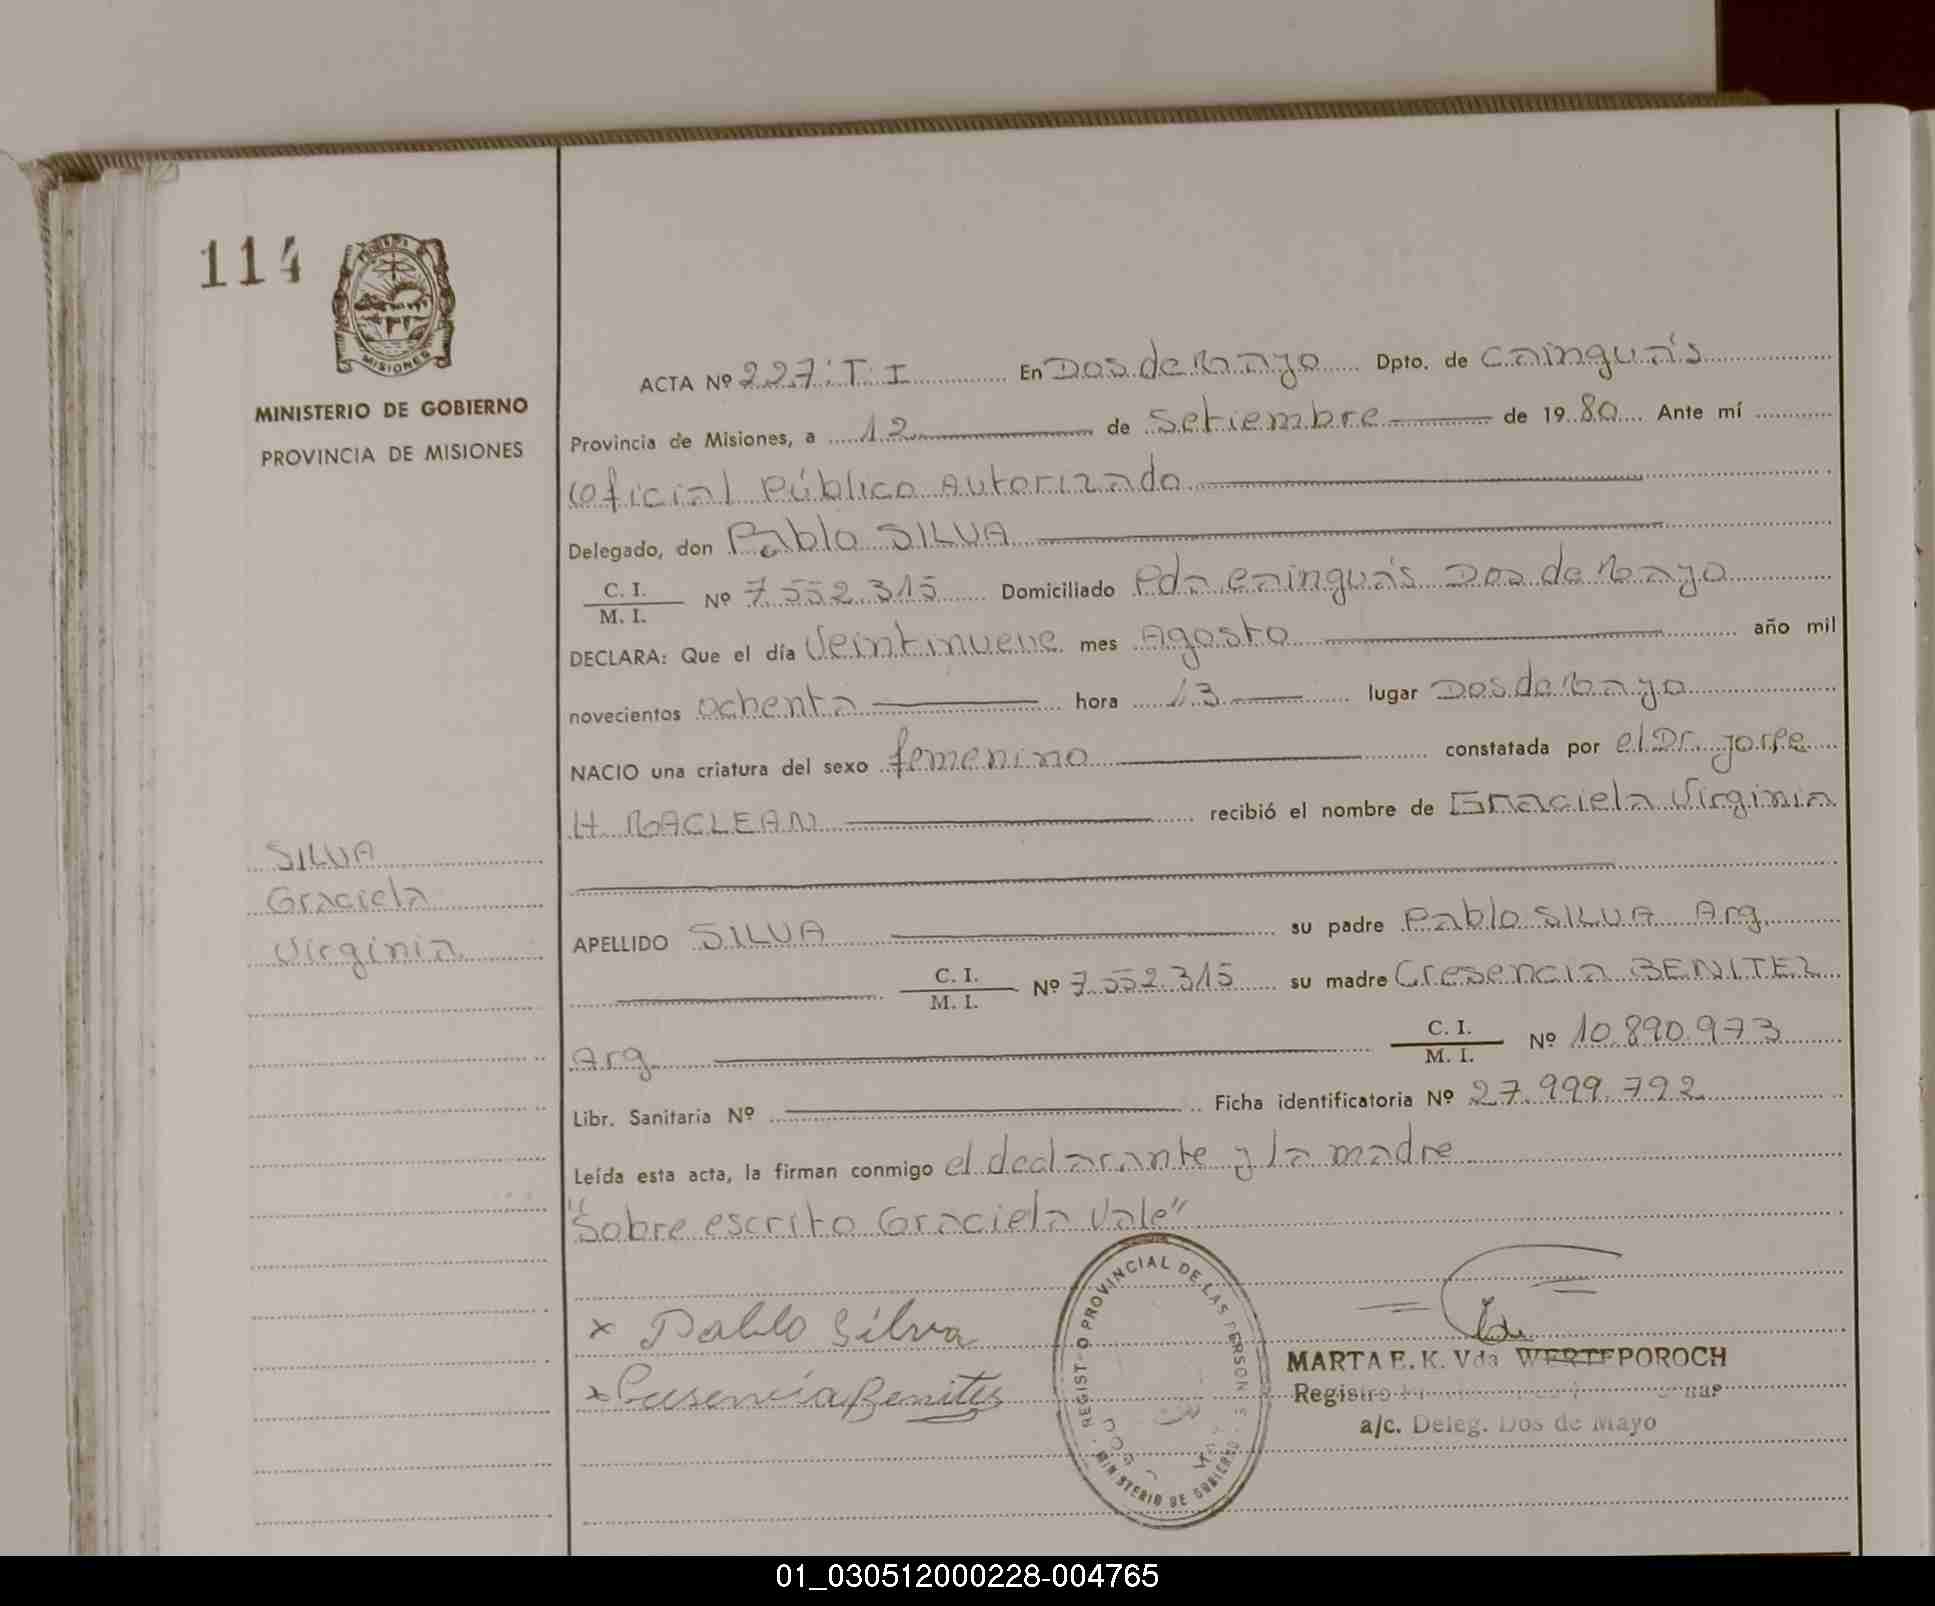 114
MISIONES
MINISTERIO DE GOBIERNO
PROVINCIA DE MISIONES
SILVA
Graciela
Virginia
ACTA Nº 227: T: I En Dos de Mayo Dpto. de Cainguás
Provincia de Misiones, a 12 de Setiembre de 1980 Ante mí
Oficial Público Autorizado
Delegado, don Pablo SILVA
C. I.
M. I. Nº 7.552.315 Domiciliado Pda Cainguás Dos de Mayo
DECLARA: Que el día Veintinueve mes Agosto año mil
novecientos ochenta hora 13 lugar Dos de Mayo
NACIO una criatura del sexo femenino constatada por el Dr. Jorge
H. MACLEAN recibió el nombre de Graciela Virginia
APELLIDO SILVA su padre Pablo SILVA Arg.
C. I.
M. I. Nº 7.552.315 su madre Cresencia BENITEZ
Arg. C. I.
M. I. Nº 10.890.973
Libr. Sanitaria Nº Ficha identificatoria Nº 27.999.792
Leída esta acta, la firman conmigo el declarante y la madre
"Sobre escrito Graciela Vale"
x Pablo Silva
x Cresencia Benites
REGISTRO PROVINCIAL DE LAS PERSONAS
MINISTERIO DE GOBIERNO
MARTA E. K. Vda WERTEPOROCH
Registro
a/c. Deleg. Dos de Mayo
01_030512000228-004765